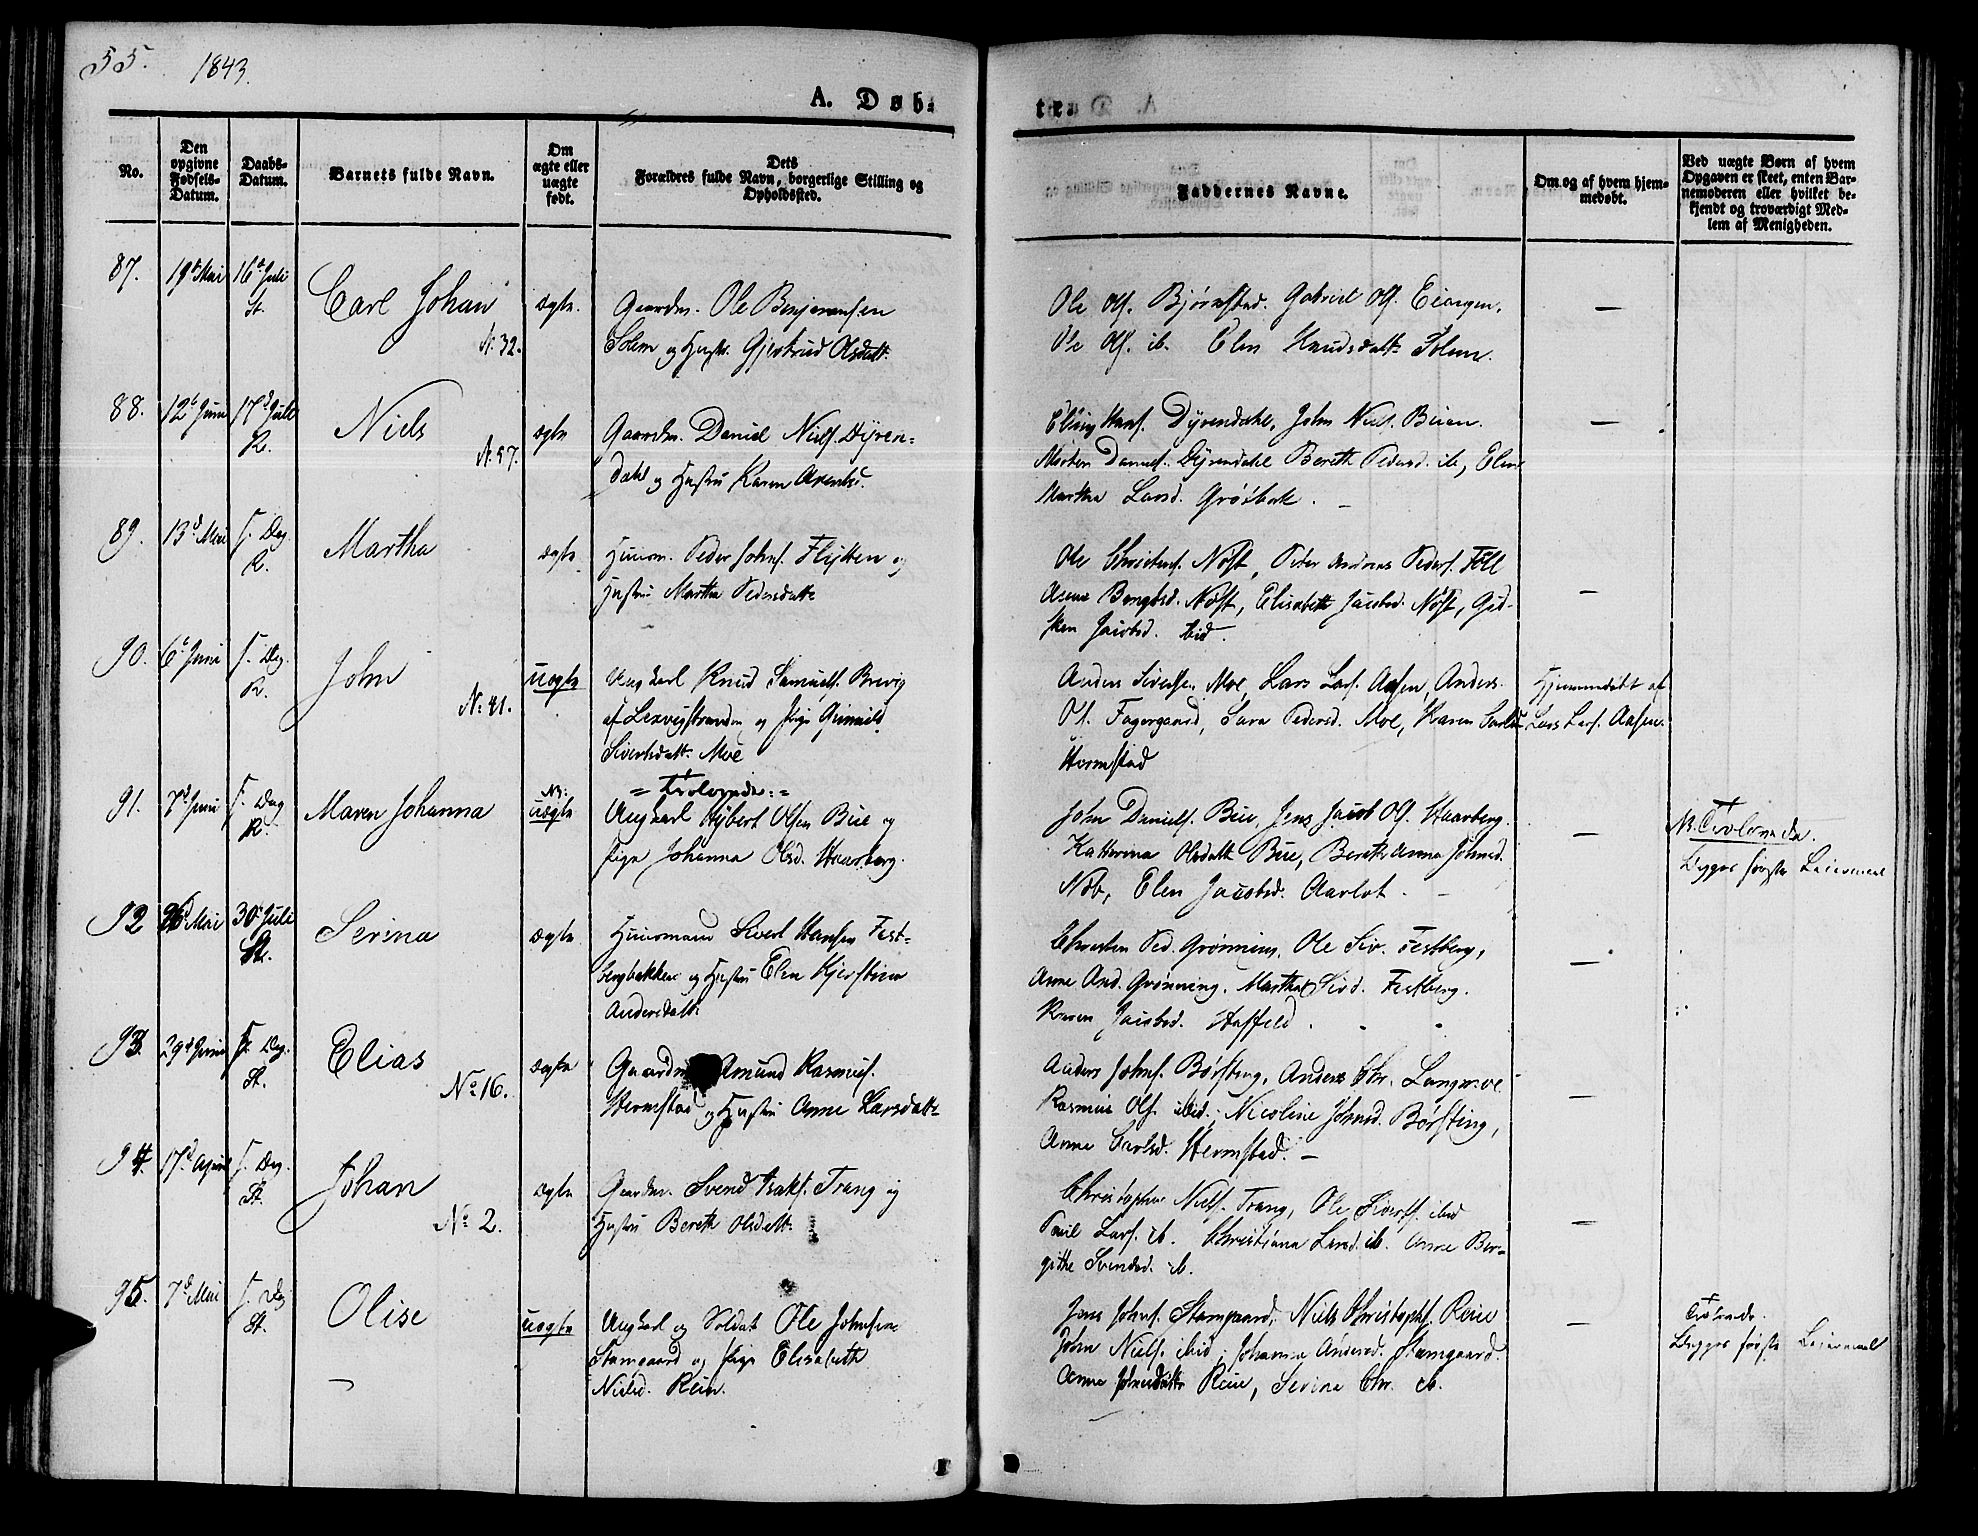 55.
1843.
A. Døb-
te.
No.
Den opgivne Fødsels-Datum.
Daabs-Datum.
Barnets fulde Navn.
Om ægte eller uægte født.
Dets Forældres fulde Navn, borgerlige Stilling og Opholdssted.
Faddernes Navne.
Om og af hvem hjemmedøbt.
Ved uægte Børn af hvem Opgaven er skeet, enten Barnemoderen eller hvilket bekjendt og troværdigt Medlem af Menigheden.
87. 19de Mai 16de Juli
St.
Carl Johan
N. 32.
ægte.
Gaardm. Ole Benjaminsen
Solem og Hustr. Gjertrud Olsdatt.
Ole Ols. Bjørnstad. Gabriel Ols.
Ole Ols. ib. Elen Knudsdatt. Solem.
—
88. 12te Juni 17de Juli
R.
Niels
N. 57.
ægte
Gaardm. Daniel Niels. Dyren-
dahl og Hustru Karen
Hans. Dyrendahl, John Niels. Buen.
Morten Daniels. Dyrendahl Bereth Pedersd. ib, Elen
Martha Larsd. Grøtbak.
—
89. 13de Mai s. Dag
R.
Martha
ægte
Huusm. Peder Johns. Flytten og
Hustru Martha Pedersdatt.
Ole Christens. Nøst, Peter Andreas Peders.
Bengtsd. Nøst, Elisabeth Jacobsd. Nøst, Gid-
sken Jacobsd. ibid.
—
90. 6te Juni s. Dag.
R.
John
N. 41.
uægte
Ungkarl Knud Samuels. Brevig
af Lexvigstranden og Pige Gunnild
Sivertsdatt. Moe
Anders Sivertsen Moe, Lars Lars. Aasen, Anders
Ols. Fagergaard, Sara Pedersd. Moe, Karen
Hermstad
Hjemmedøbt af
Lars Lars. Aasen.
91. 7de Juni s. Dag
R.
Maren Johanna
NB.
uægte
= Trolovede: =
Ungkarl Ols en Bue og
Pige Johanna Olsd. Haarberg.
John Daniels. Bue, Jens Jacob Ols. Haarberg.
Katherina Olsdatt. Bue, Bereth Anna Johnsd.
Elen Jacobsd. Aarlot.
—
NB. Trolovede.
Begges første Leiermaal
92 26de Mai 30te Juli
St.
Serina
ægte
Huusmand Sivert Hansen Fest-
bergbakken og Hustru Elen Kjerstina
Andersdatt.
Christen Ped. Grønning, Ole Siv. Festberg,
Anne And. Grønning. Martha Sivd. Festberg.
Karen Jacobsd. Haffeld.
—
93. 29de Juni s. Dag.
St.
Elias
No 16.
ægte
Gaardm. Amund Rasmus.
Hermstad og Hustru Anne Larsdatt.
Anders Johns. Børsting, Anders Chr. Langmoe.
Rasmus Ols. ibid, Nicoline Johnsd. Børsting,
Anne Hermstad.
—
94. 17de April s. Dag.
St.
Johan
No 2.
ægte
Gaardm. Svend Isaks. Trang og
Hustru Bereth Olsdatt.
Christopher Niels. Trang, Ole Siverts. ibid
Paul Lars. ib. Christiana Larsd. ib. Anne Ber-
githe Svendsd. ib.
—
95. 7de Mai s. Dag
St.
Olise
uægte
Ungkarl og Soldat Ole Johnsen
Stamgaard og Pige Elisabeth
Nielsd. Rein.
—
Jens Johns. Stamgaard, Niels Christoph. Rein
John Niels. ibid, Johanna Andersd. Stamgaard.
Anne Johnsdatt. Rein, Serina Chr. ib.
—
Trolovede.
Begges første Leiermaal